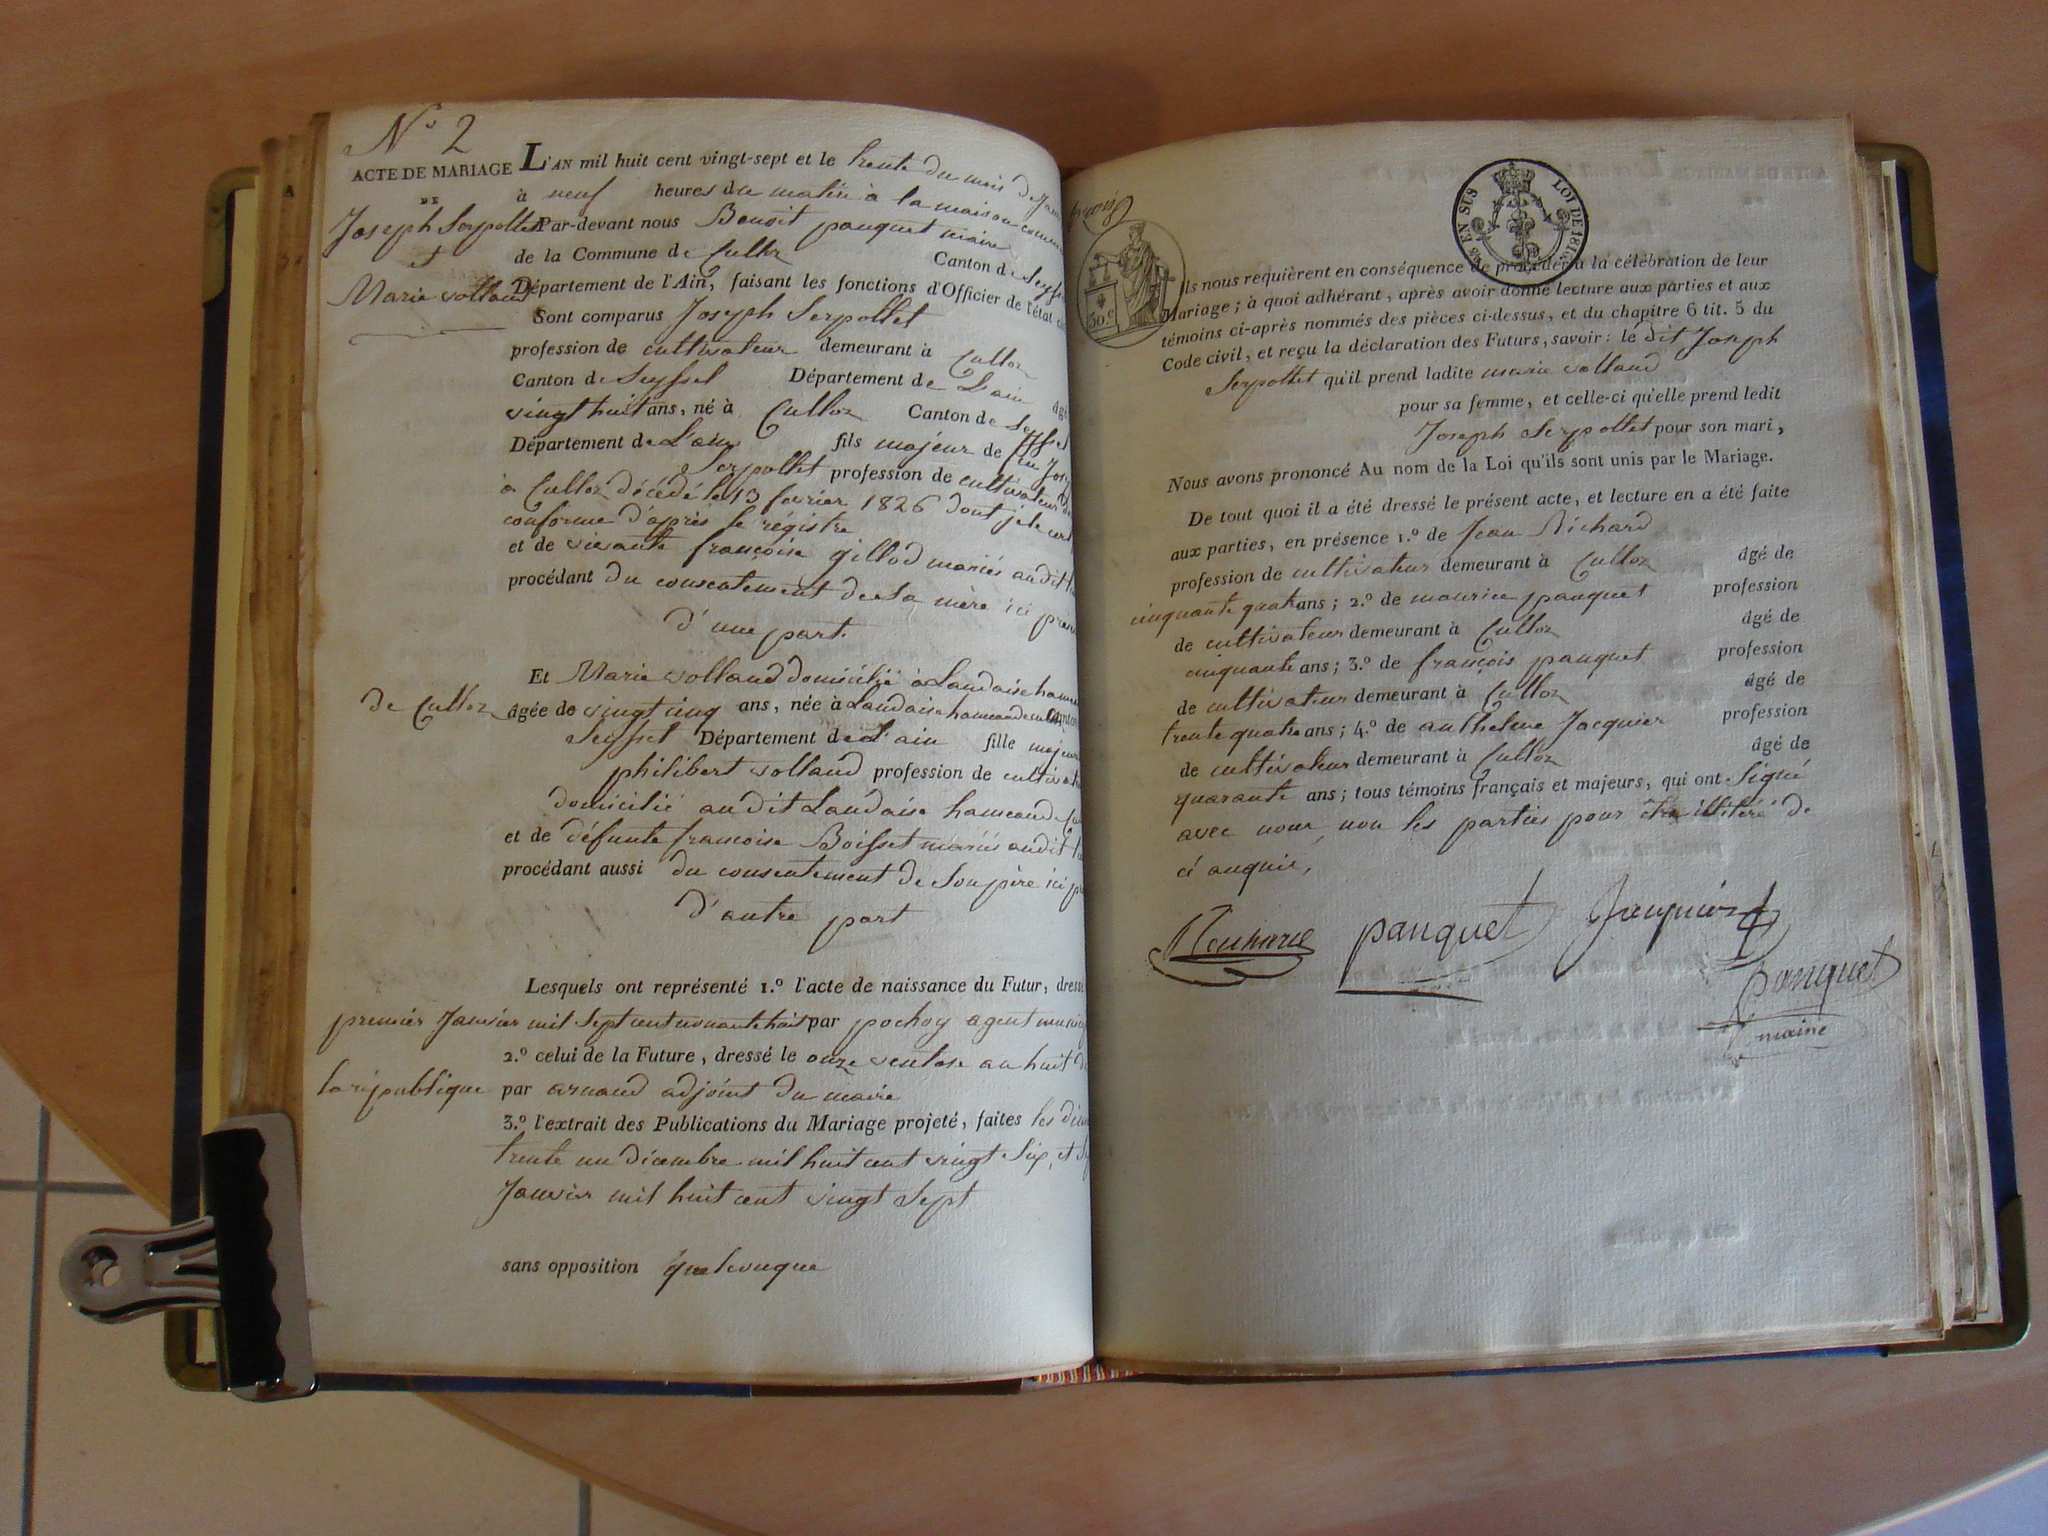 N° 2
ACTE DE MARIAGE
DE
Joseph Serpollet
et
Marie Volland
L'AN mil huit cent vingt-sept et le trente du mois de
à neuf heures du matin à la maison
Par-devant nous Benoit pauquet maire
de la Commune de Culloz Canton de Seyssel
Département de l'Ain, faisant les fonctions d'Officier de l'état
Sont comparus Joseph Serpollet
profession de cultivateur demeurant à Culloz
Canton de Seyssel Département de L'ain âgé
vingt huit ans, né à Culloz Canton de Seyssel
Département de L'ain fils majeur de feu
Serpollet profession de cultivateur
à Culloz décédé le 13 fevrier 1826 dont je le
conforme d'après le régistre
et de vivante francoise gillod mariés audit
procédant du consentement de sa mère ici
d'une part.
Et Marie volland domicilié à Landaise
de Culloz âgée de vingt cinq ans, née à Landaise hameau de
Seyssel Département de L'ain fille
philibert volland profession de
domicilié audit Landaise hameau de
et de défunte francoise Boisset mariés audit
procédant aussi du consentement de Son père ici
d'autre part
Lesquels ont représenté 1.° l'acte de naissance du Futur, dressé
premier Janvier mil sept cent nonante huit par pochoy agent
2.° celui de la Future, dressé le onze ventose an huit de
la république par arnaud adjoint du maire
3.° l'extrait des Publications du Mariage projeté, faites les
trente un décembre mil huit cent vingt six, et
Janvier mil huit cent vingt sept
sans opposition quelconque
EN SUS
LOI DE
30.c
Ils nous requièrent en conséquence de procéder à la célébration de leur
Mariage; à quoi adhérant, après avoir donné lecture aux parties et aux
témoins ci-après nommés des pièces ci-dessus, et du chapitre 6 tit. 5 du
Code civil, et reçu la déclaration des Futurs, savoir: le dit Joseph
Serpollet qu'il prend ladite marie volland
pour sa femme, et celle-ci qu'elle prend ledit
Joseph Serpollet pour son mari,
Nous avons prononcé Au nom de la Loi qu'ils sont unis par le Mariage.
De tout quoi il a été dressé le présent acte, et lecture en a été faite
aux parties, en présence 1.° de Jean Richard
profession de cultivateur demeurant à Culloz âgé de
cinquante quatre ans; 2.° de maurice pauquet profession
de cultivateur demeurant à Culloz âgé de
cinquante ans; 3.° de françois pauquet profession
de cultivateur demeurant à Culloz âgé de
trente quatre ans; 4.° de anthelme Jacquier profession
de cultivateur demeurant à Culloz âgé de
quarante ans; tous témoins français et majeurs, qui ont Signé
avec nous, non les parties pour être illitéré de
ci anquis,
pauquet
Jacquier
pauquet
maire